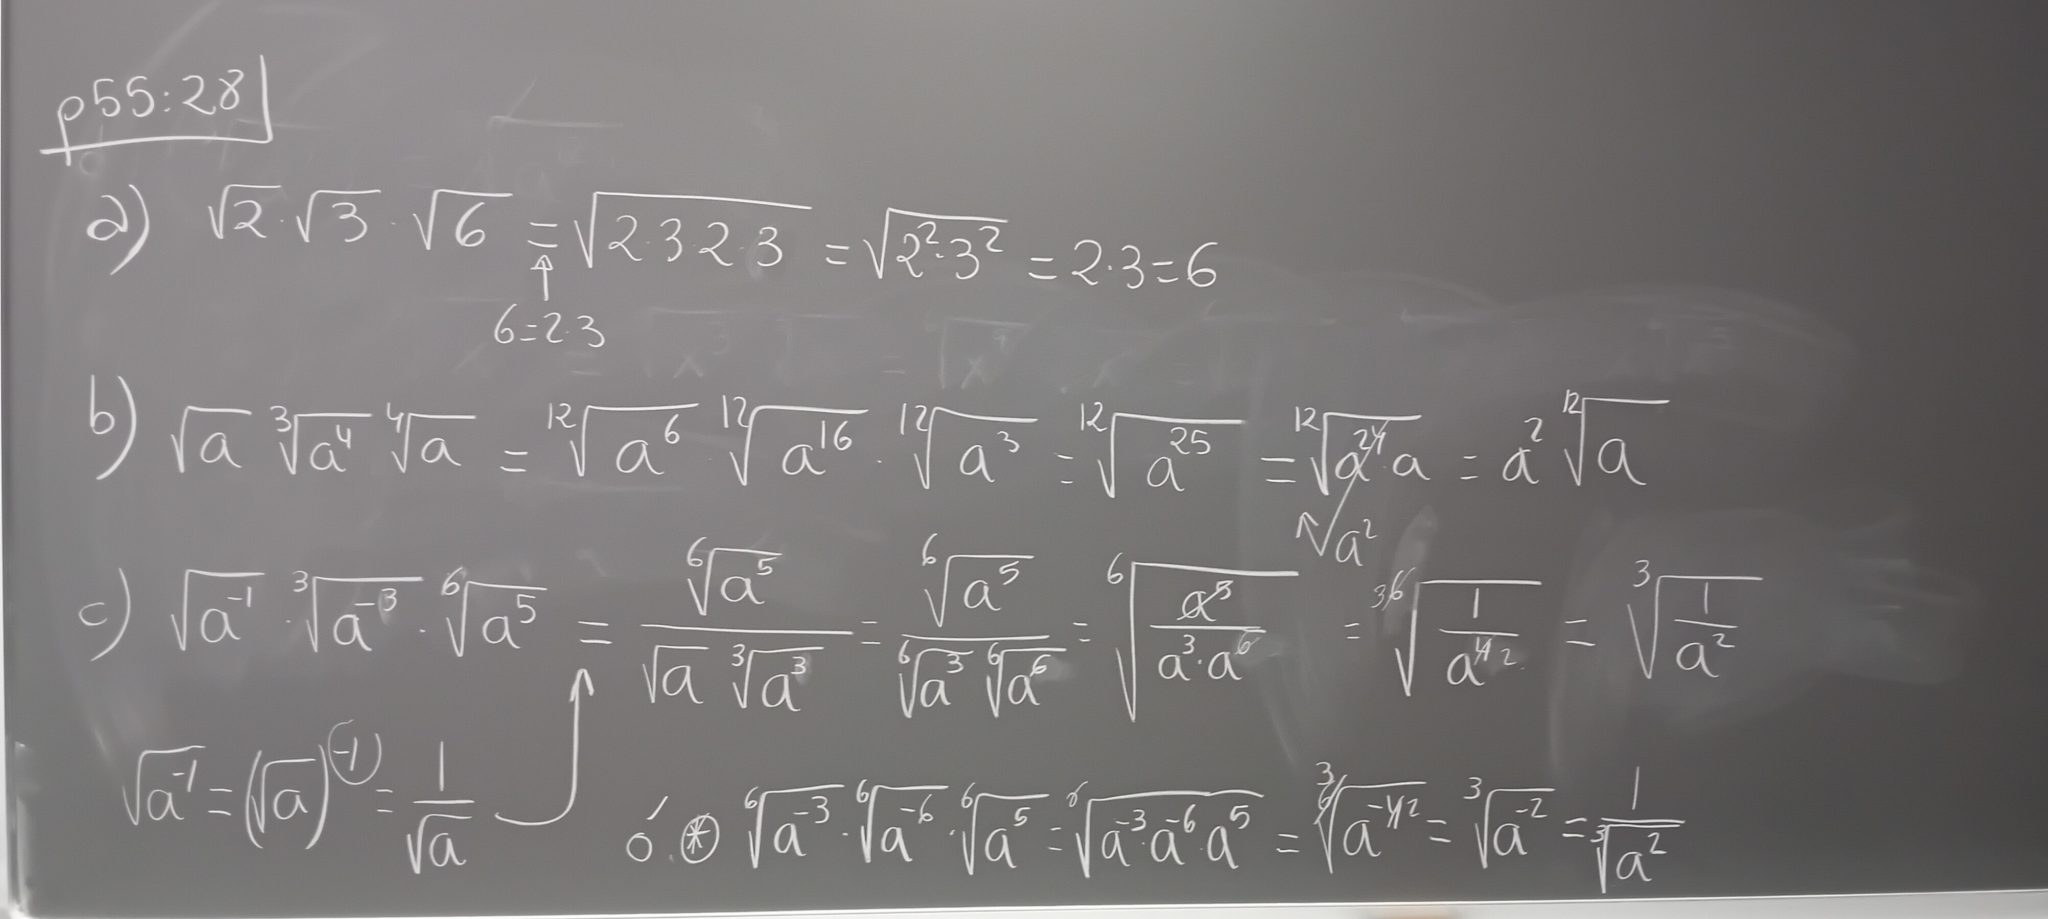 p55:28
a) √2·√3·√6 = √(2·3·2·3) = √(2²·3²) = 2·3=6
↑
6=2·3
b) √a ∛(a⁴) ∜a = ¹²√(a⁶) · ¹²√(a¹⁶) · ¹²√(a³) = ¹²√(a²⁵) = ¹²√(a²⁴·a) = a² ¹²√a
a²
c) √(a⁻¹) · ∛(a⁻³) · ⁶√(a⁵) = ⁶√(a⁵) / (√a ∛(a³)) = ⁶√(a⁵) / (⁶√(a³) ⁶√(a⁶)) = ⁶√(a⁵/(a³·a⁶)) = ³ ⁶√(1/a⁴ ²) = ∛(1/a²)
√(a⁻¹) = (√a)⁽⁻¹⁾ = 1/√a
ó. ⊛ ⁶√(a⁻³) · ⁶√(a⁻⁶) · ⁶√(a⁵) = ⁶√(a⁻³·a⁻⁶·a⁵) = ³ ⁶√(a⁻⁴ ²) = ∛(a⁻²) = 1/∛(a²)